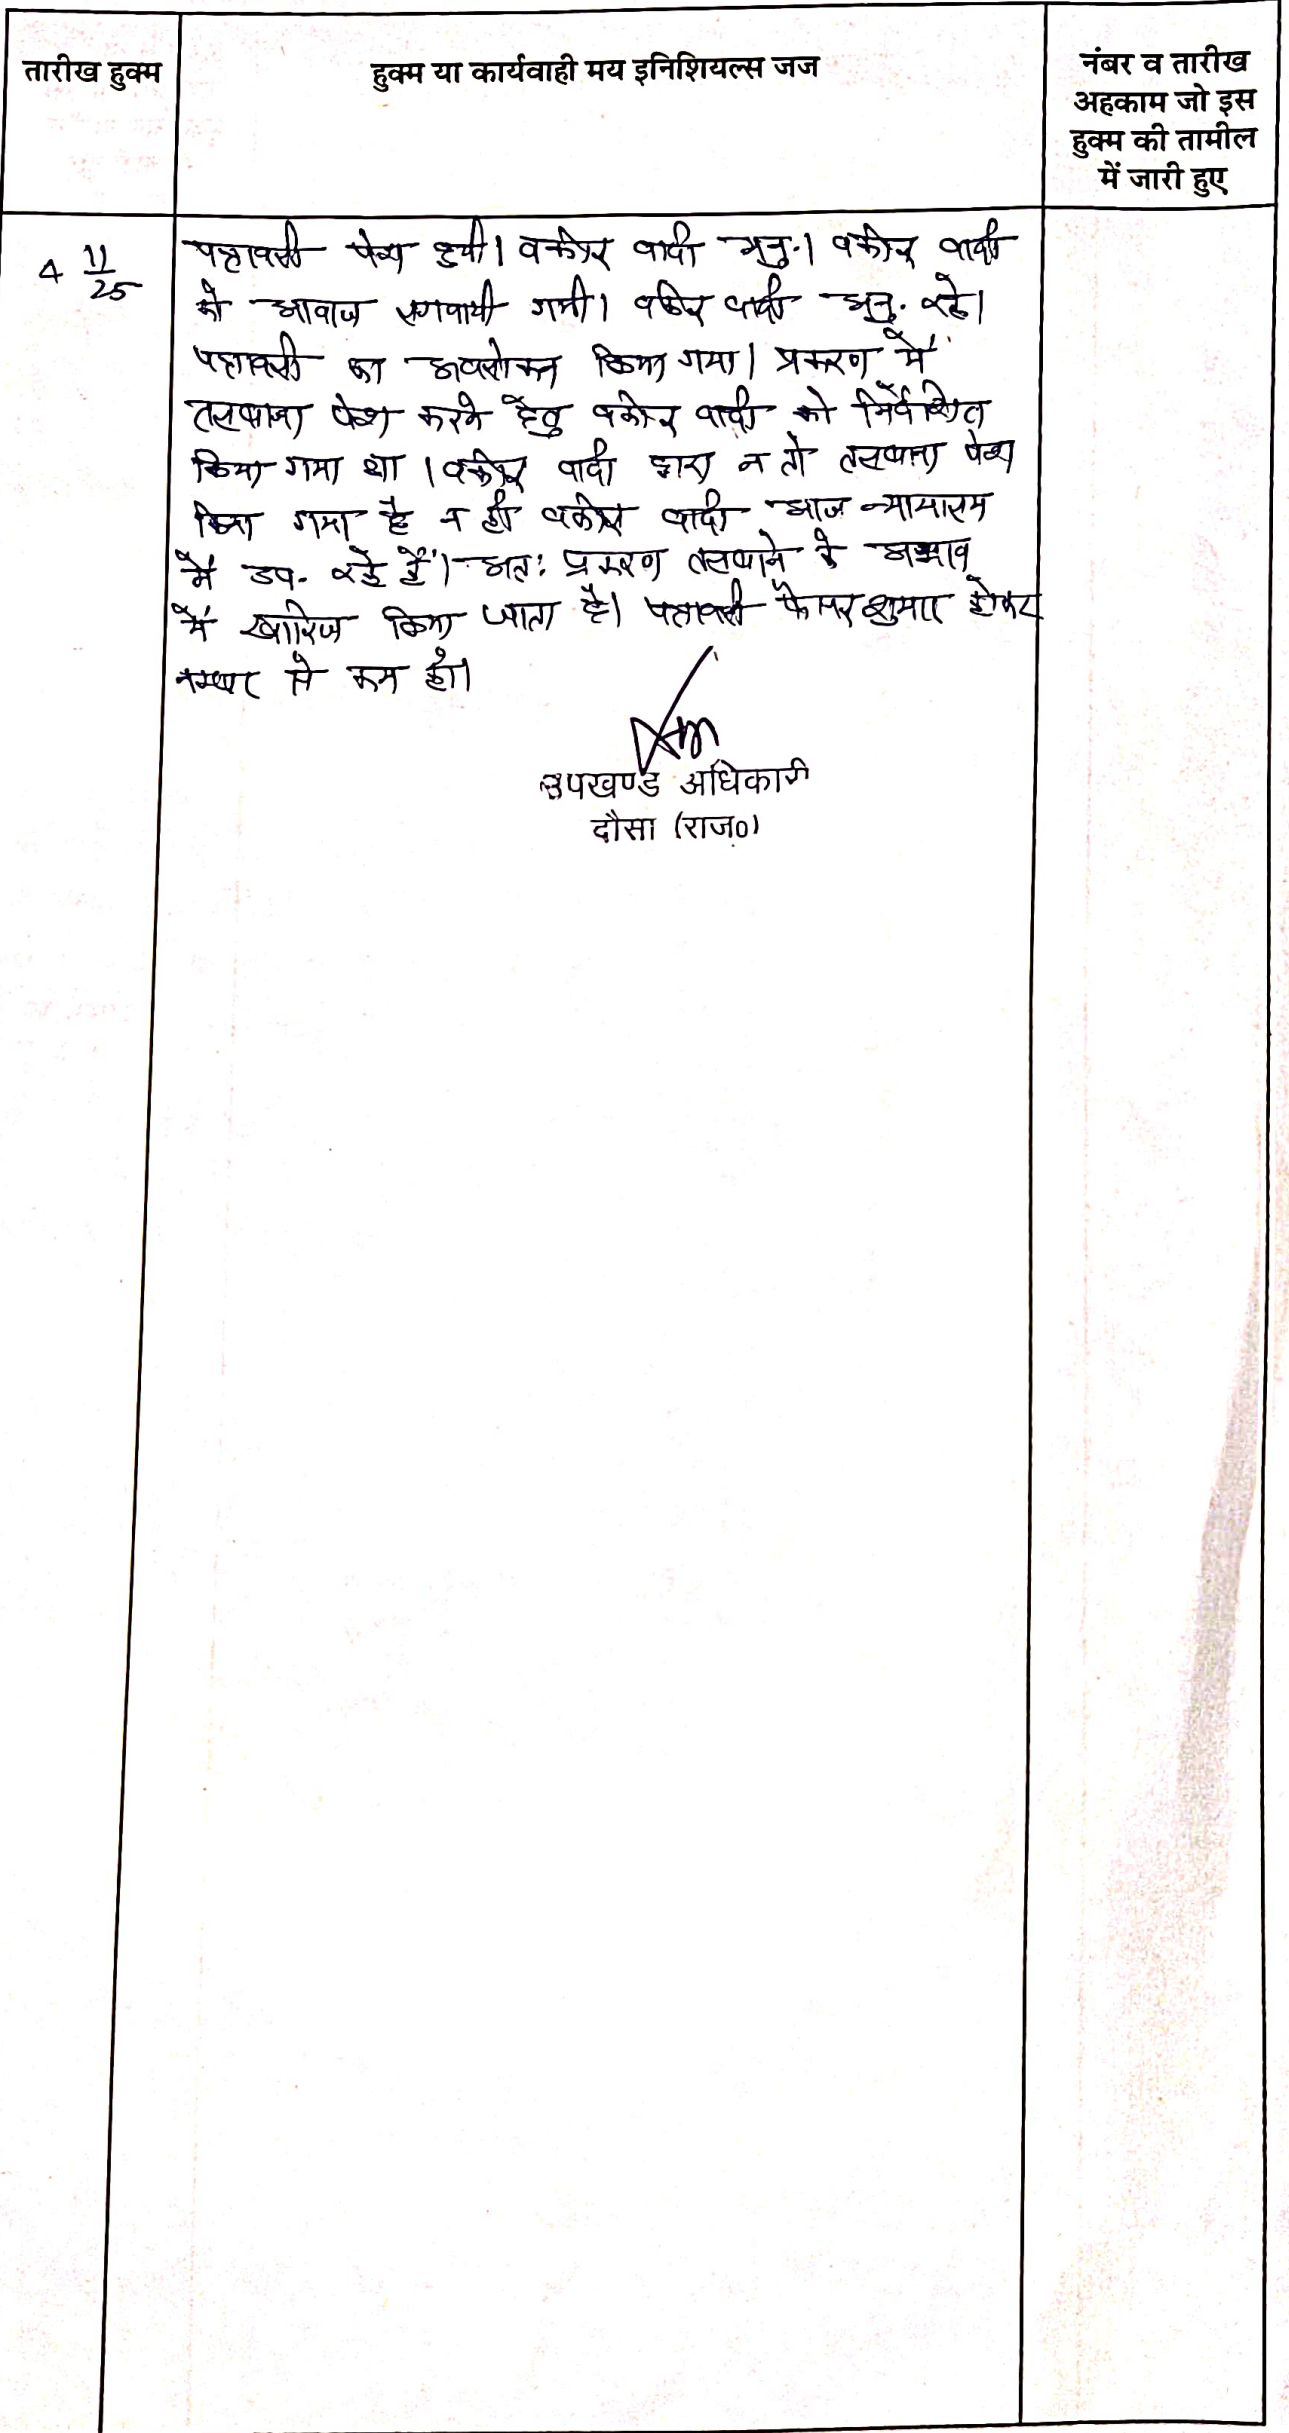 तारीख हुक्म
हुक्म या कार्यवाही मय इनिशियल्स जज
नंबर व तारीख
अहकाम जो इस
हुक्म की तामील
में जारी हुए
4 11/25
पत्रावली पेश हुयी। वकील वादी अनु.। वकील वादी
को आवाज लगवायी गयी। वकील वादी अनु. रहे।
पत्रावली का अवलोकन किया गया। प्रकरण में
तलबाना पेश करने हेतु वकील वादी को निर्देशित
किया गया था। वकील वादी द्वारा न तो तलबाना पेश
किया गया है न ही वकील वादी आज न्यायालय
में उप. रहे हैं। अतः प्रकरण तलबाने के अभाव
में खारिज किया जाता है। पत्रावली फैसल शुमार होकर
नम्बर से कम हो।
उपखण्ड अधिकारी
दौसा (राज०)